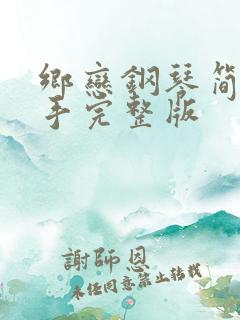 鄉戀鋼琴簡
手完整版
謝師恩
未任同意禁止转载